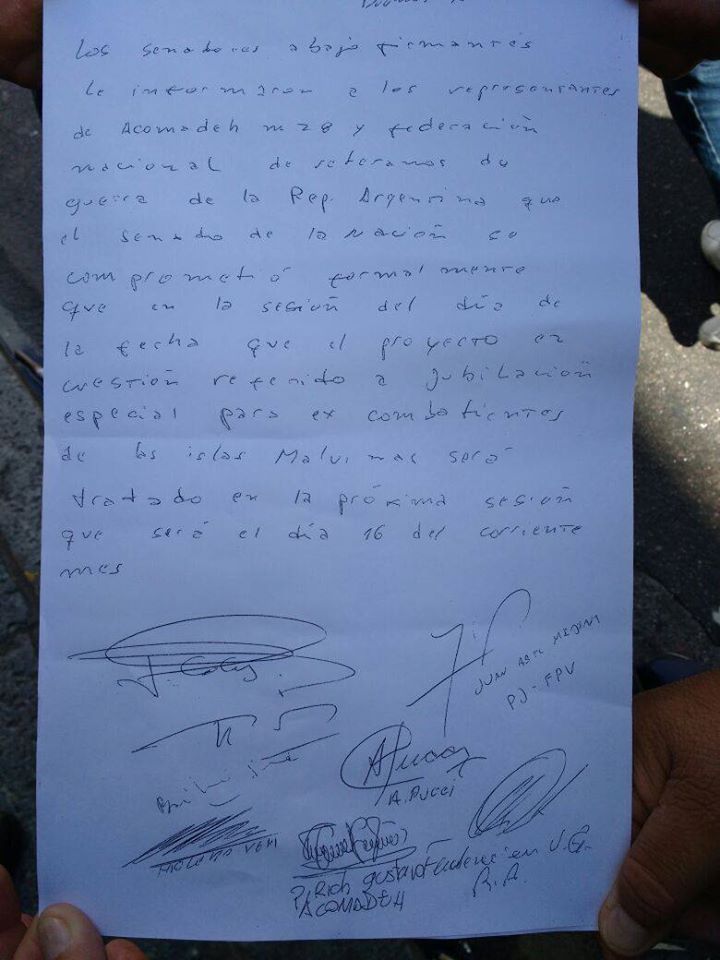 Los senadores abajo firmantes
le informaron a los representantes
de Acomadeh M 28 y federación
nacional de veteranos de
guerra de la Rep. Argentina que
el senado de la Nación se
comprometió formalmente
que en la sesión del día de
la fecha que el proyecto en
cuestión referido a Jubilación
especial para ex combatientes
de las islas Malvinas será
tratado en la próxima sesión
que será el día 16 del corriente
mes
JUAN
PJ-FPV
A. PUCCI
Gustavo V.G.
ACOMADEH R.A.